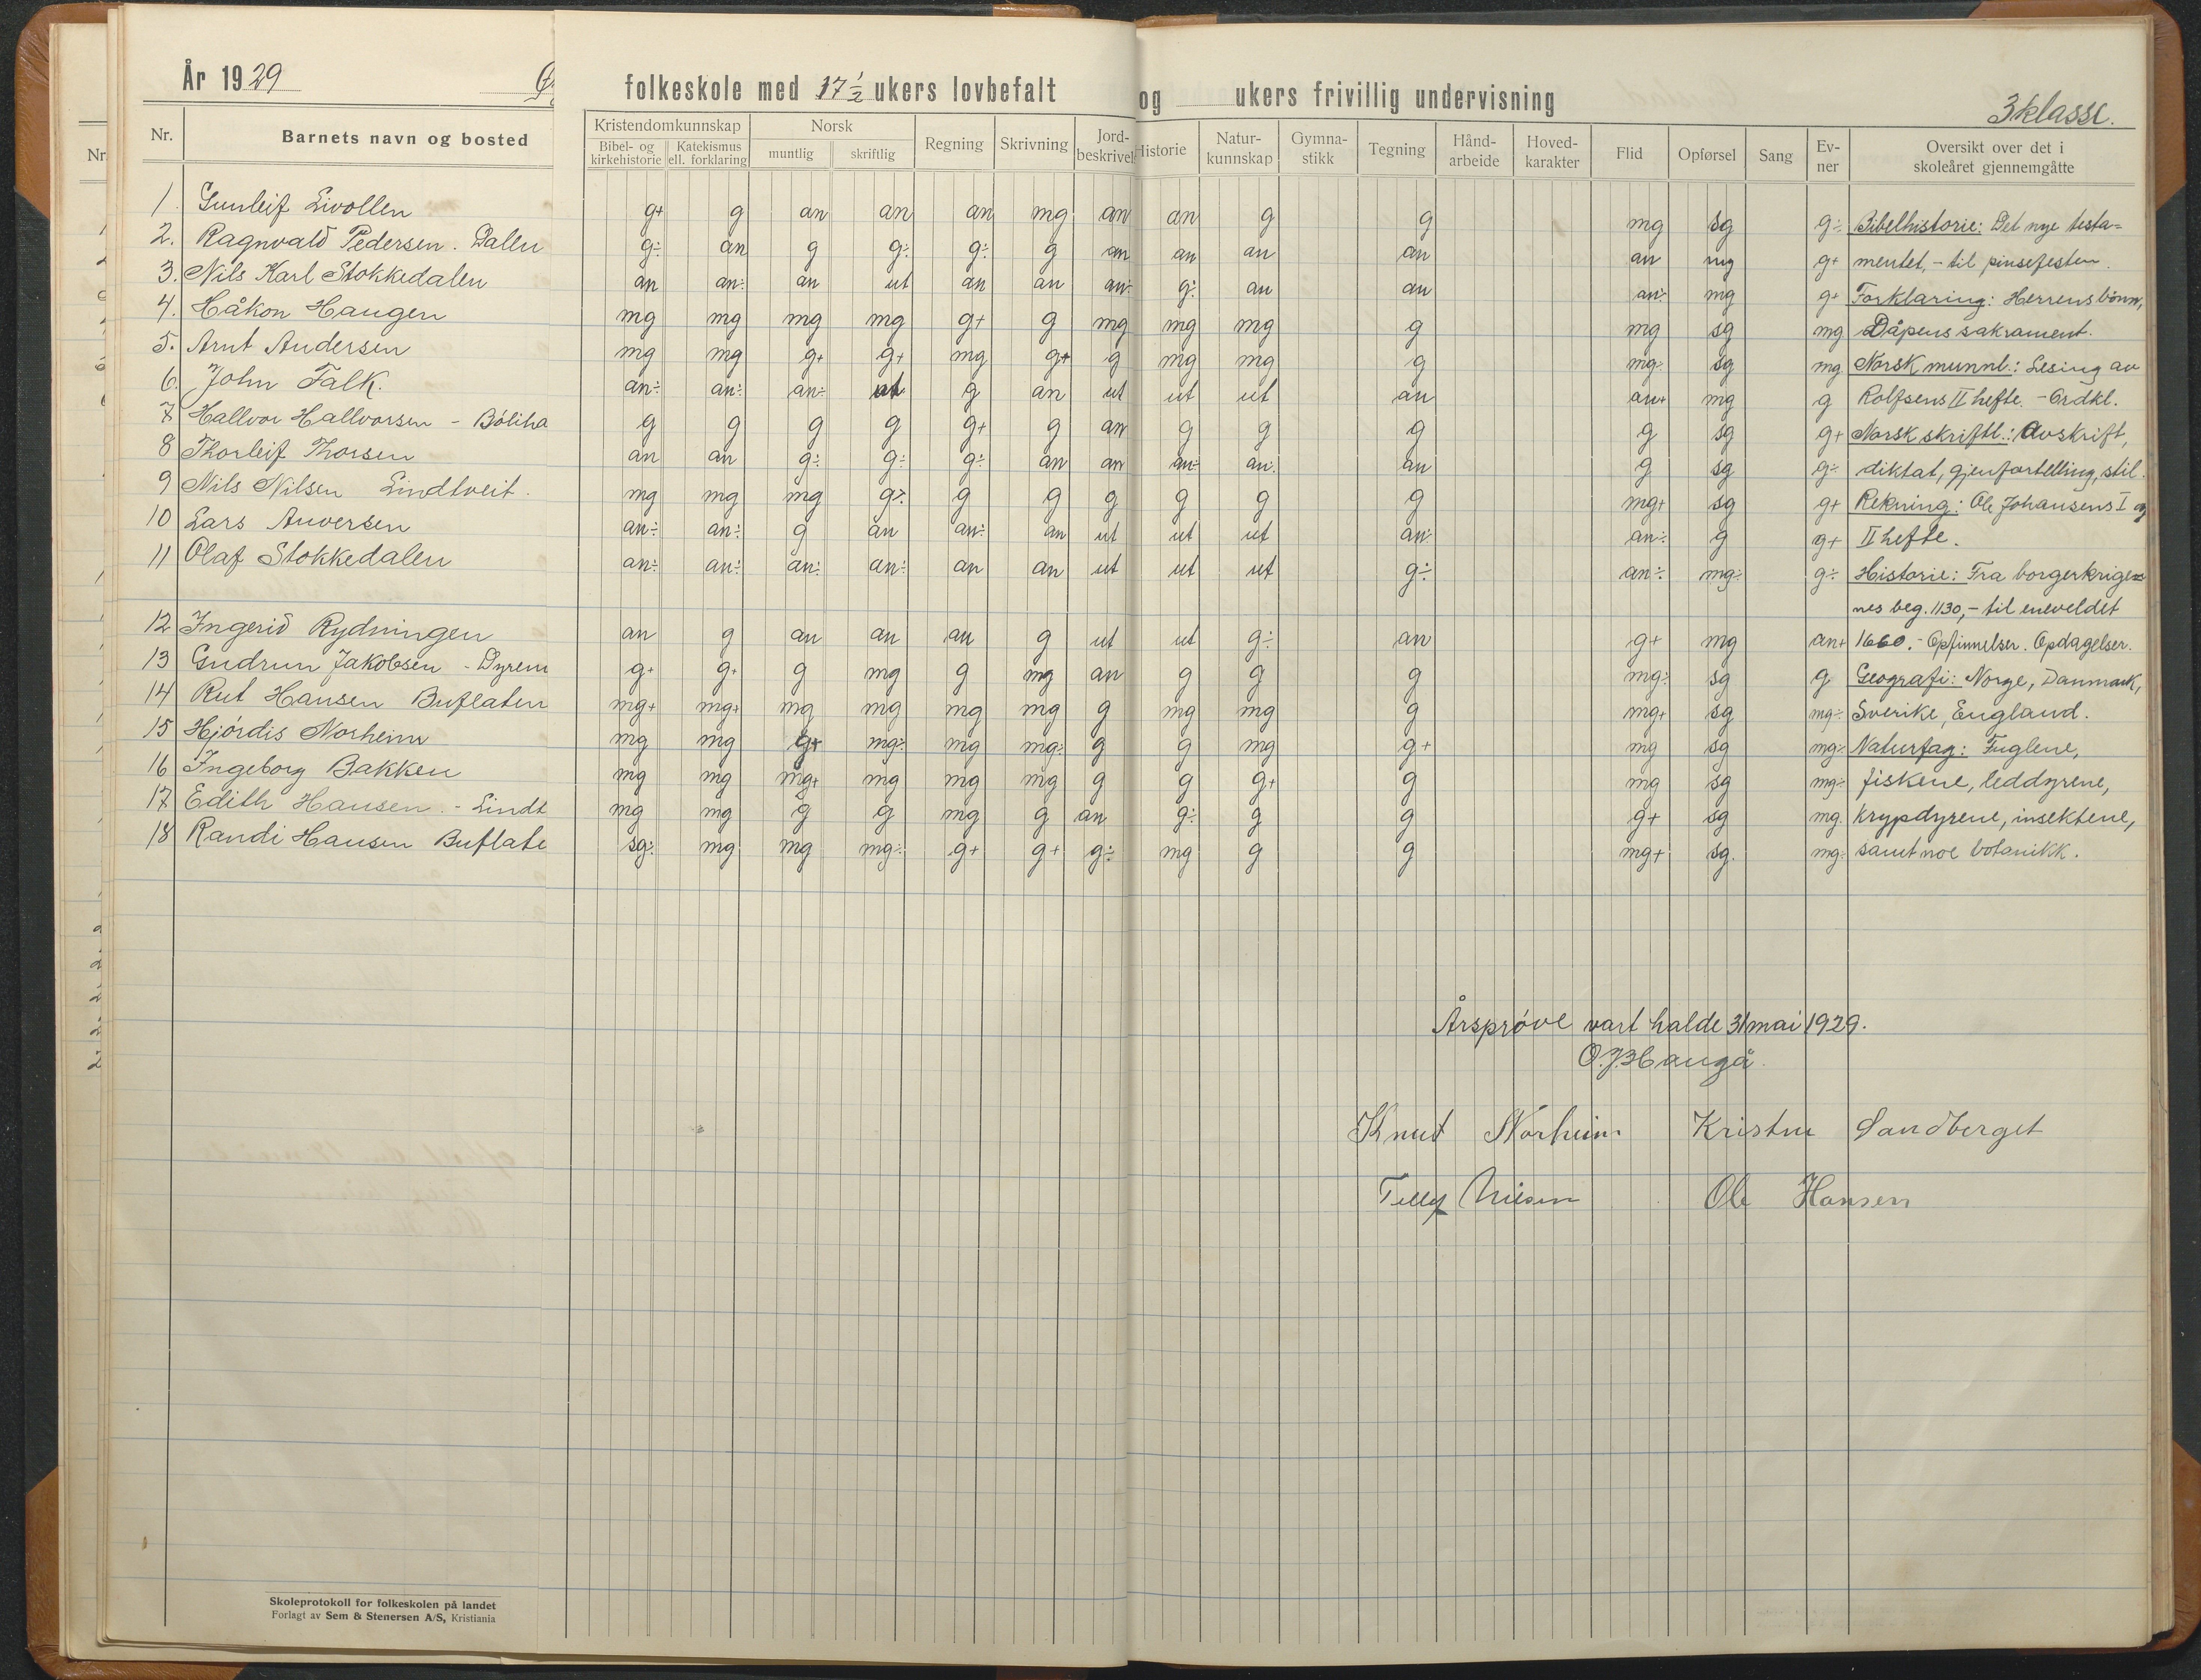 År 1929
folkeskole med 17 1/2 ukers lovbefalt og ukers frivillig undervisning
3 klasse.
Nr. Barnets navn og bosted Kristendomkunnskap Norsk Regning Skrivning Jord-beskrivel Historie Natur-kunnskap Gymna-stikk Tegning Hånd-arbeide Hoved-karakter Flid Opførsel Sang Ev-ner Oversikt over det i skoleåret gjennemgåtte
Bibel- og kirkehistorie Katekismus ell. forklaring muntlig skriftlig
1 Gunleif Livollen g+ g an an an mg an an g g mg sg g÷ Bibelhistorie: Det nye testa=
2. Ragnvald Pedersen. Dalen g÷ an g g÷ g÷ g an an an an an mg g+ mentet, - til pinsefesten.
3. Nils Karl Stokkedalen an an÷ an ut an an an÷ g÷ an an an÷ mg g+ Forklaring: Herrens bönn,
4. Håkon Haugen mg mg mg mg g+ g mg mg mg g mg sg mg Dåpens sakrament.
5. Arnt Andersen mg mg g+ g+ mg g+ g mg mg g mg÷ sg mg Norsk munnl.: Lesing av
6. John Falk. an÷ an÷ an÷ ut g an ut ut ut an an+ mg g Rolfsens II hefte. - Ordkl.
7 Hallvor Hallvorsen - Böliha g g g g g+ g an g g g g sg g+ Norsk skriftl.: Avskrift,
8 Thorleif Thorsen an an g÷ g÷ g÷ an an an÷ an÷ an g sg g÷ diktat, gjenfortelling, stil.
9 Nils Nilsen Lindtveit. mg mg mg g÷ g g g g g g mg+ sg g+ Rekning: Ole Johansens I og
10 Lars Anversen an÷ an÷ g an an÷ an ut ut ut an÷ an÷ g g+ II hefte.
11 Olaf Stokkedalen an÷ an÷ an÷ an÷ an an ut ut ut g÷ an÷ mg÷ g÷ Historie: Fra borgerkrige=
nes beg. 1130, - til eneveldet
12 Ingerid Rydningen an g an an an g ut ut g÷ an g+ mg an+ 1660. - Opfinnelser. Opdagelser.
13 Gudrun Jakobsen - Dyrem g+ g+ g mg g mg an g g g mg÷ sg g Geografi: Norge, Danmark,
14 Rut Hansen Buflaten mg+ mg+ mg mg mg mg g mg mg g mg+ sg mg÷ Sverike, England.
15 Hjördis Norheim mg mg g+ mg÷ mg mg÷ g g mg g+ mg sg mg÷ Naturfag: Fuglene,
16 Ingeborg Bakken mg mg mg+ mg mg mg g g g+ g mg sg mg÷ fiskene, leddyrene,
17 Edith Hansen. - Lindt mg mg g g mg g an g÷ g g g+ sg mg. krypdyrene, insektene,
18 Randi Hansen Buflate sg÷ mg mg mg÷ g+ g+ g÷ mg g g mg+ sg. mg÷ samt noe botanikk.
Årsprøve vart halde 31 mai 1929.
O.J. Haugå.
Knut Norheim Kristen Sandberget
Tellef Nilsen Ole Hansen
Skoleprotokoll for folkeskolen på landet
Forlagt av Sem & Stenersen A/S, Kristiania